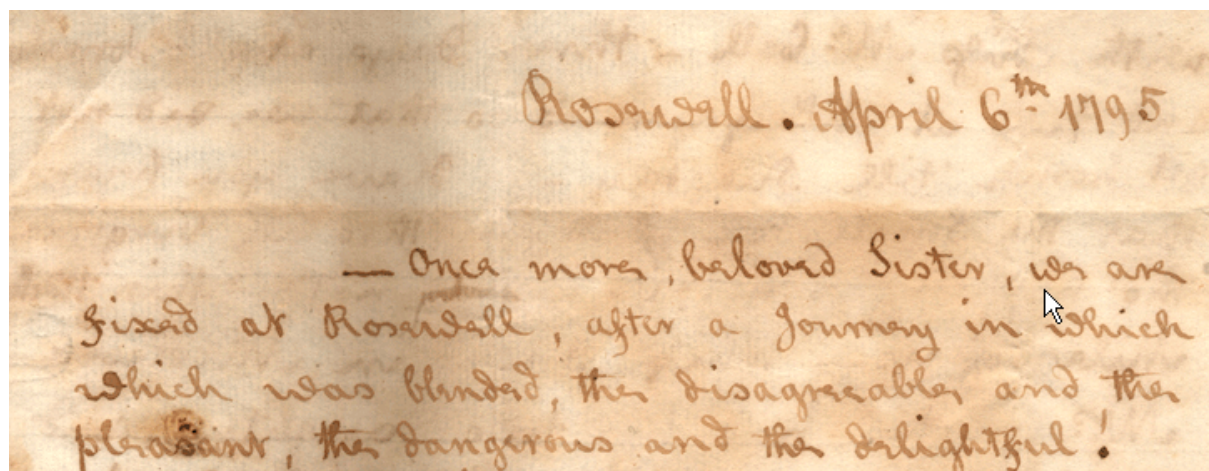 Rosewell. April 6th 1795
— Once more, beloved Sister, we are
fixed at Rosewell, after a Journey in which
which was blended, the disagreeable and the
pleasant, the dangerous and the delightful!